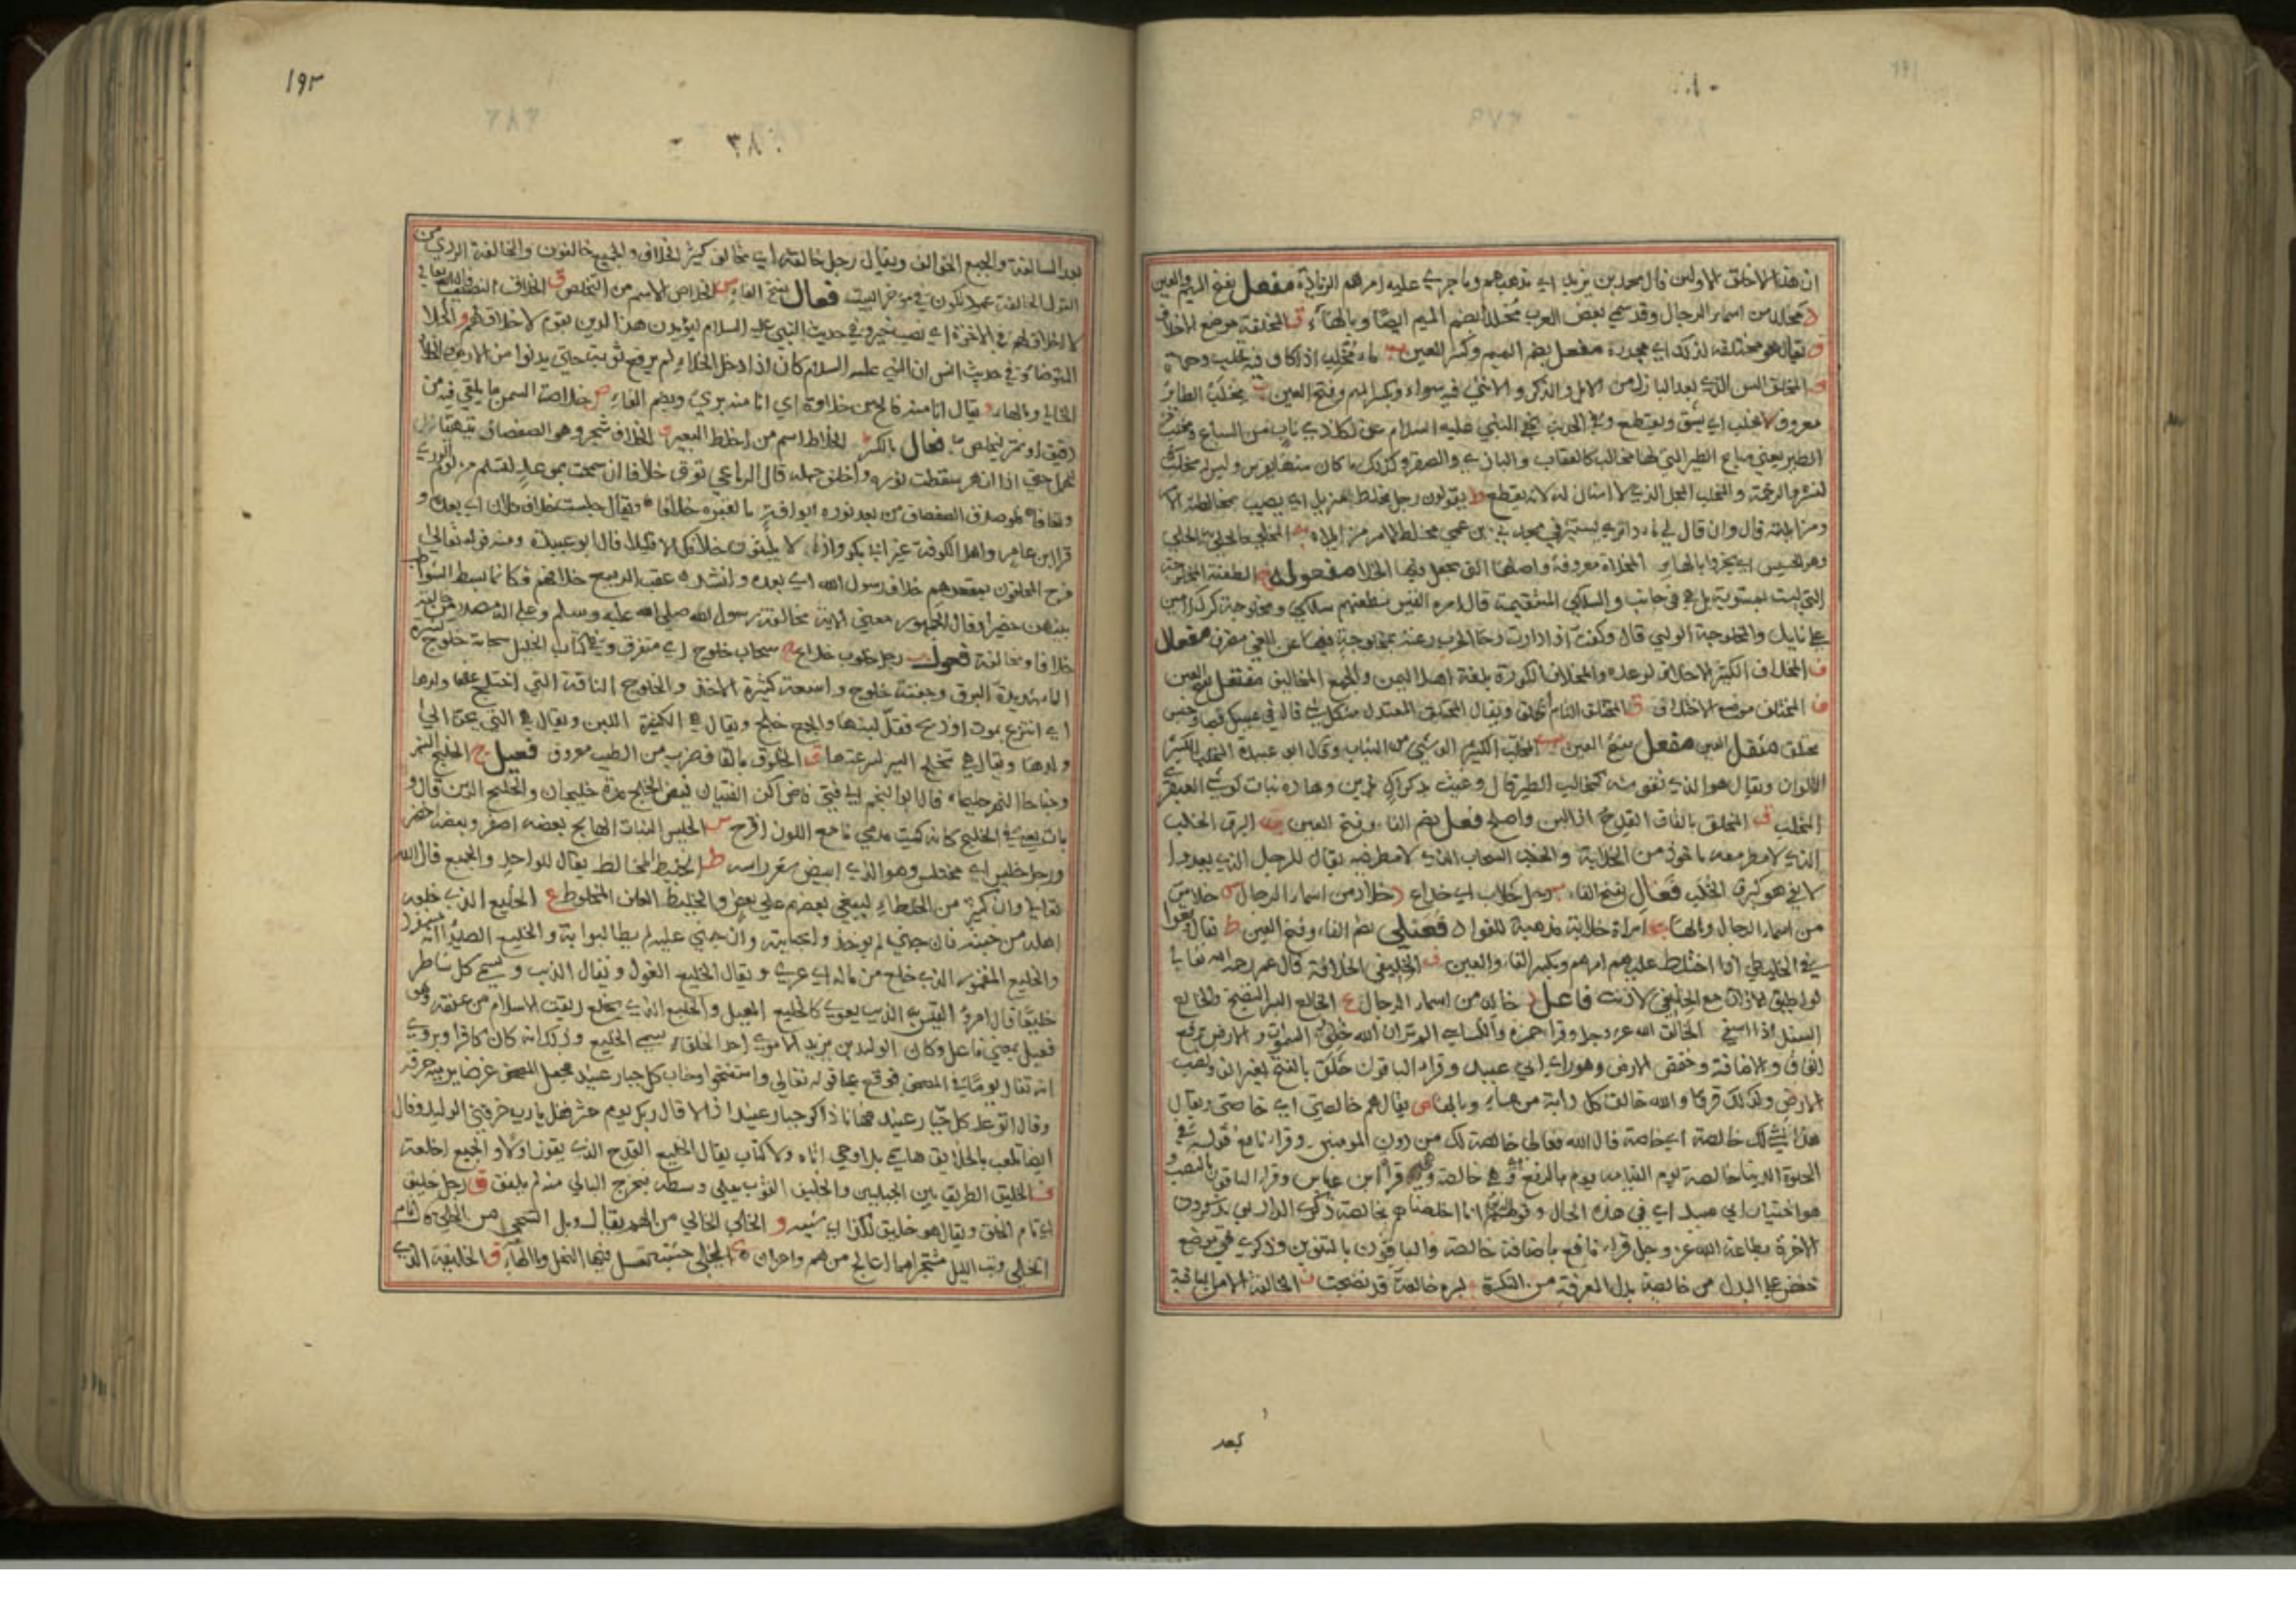 ان هذا الاخلق الاولين قال محمد بن يزيد اي مذهبهم وما جري عليه امرهم الزيادة مفعل بفتح الميم والعين
د مخلد من اسماء الرجال وقد سمي بعض العرب مخلدا بضم الميم ايضا وبالهاء ف المخلفة موضع
ق يقال هو مخلقة لذلك اي مجدرة مفعل بضم الميم وكسر العين ب ماء مخلب اذا كان فيه خلب وحماة
ف المخلف السن الذي بعد البازل من الابل والذكر والانثي فيه سواء وبكسر الميم وفتح العين ب مخلب الطائر
معروف لانه يخلب اي يشق ويقطع وفي الحديث نهي النبي عليه السلام عن كل ذي ناب من السباع ومخلب
الطير يعني سباع الطير التي لها مخالب كالعقاب والبازي والصقر وكذلك ما كان منها يفرس وليس له مخلب
كنسر والرخمة والمخلب المنجل الذي لا اسنان له لانه يقطع ط يقولون رجل مخلط مزيل اي يصيب بمخالطته
ومزايلته قال وان قال لي ماذا تري يستشيرني يجدني ابن عمي مخلط الامر مزيلا
وبالهاء المخلاة معروفة واصلها التي يجعل فيها الخلا مفعولة ج الطعنة المخلوجة
التي ليست بمستوية بل هي في جانب والسلكي المستقيمة قال امرء القيس نطعنهم سلكي ومخلوجة كرك لامين
علي نابل والمخلوجة الراي قال وكنت اذا دارت رحا الحرب رعته بمخلوجة فيها عن العي مصرف مفعال
ف المخلاف الكثير الاخلاف لوعده والمخلاف الكورة بلغة اهل اليمن والجمع المخاليف مفتعل بفتح العين
ف المختلف موضع الاختلاف ق المختلق التام الخلق ويقال المختلق المعتدل من كل شي قال في عيص
مختلق مفعل بفتح العين ب المخلب الكثير الوشي من الثياب وقال ابو عبيدة المخلب الكثير
الالوان ويقال هو الذي نقوشه كمخالب الطير قال وغيث بدكداك يزين وهاده نبات كوشي العبقري
المخلب ق المخلق بالقاف القدح اذا لين واصلح فعل بضم الفاء وفتح العين ب البرق الخلب
الذي لا مطر معه ماخوذ من الخلابة والخلب السحاب الذي لا مطر فيه يقال للرجل الذي يعد ولا
يفي هو كبرق الخلب فعال بفتح الفاء ب رجل خلاب اي خداع د خلاد من اسماء الرجال س خلاس
من اسماء الرجال وبالهاء ب امراة خلابة مذهبة للفؤاد فعيلي بضم الفاء وفتح العين ط يقال وقعوا
في الخليطي اذا اختلط عليهم امرهم وبكسر الفاء والعين ف الخليفي الخلافة قال عمر رحمه الله تعالي
لو اطيق الاذان مع الخليفي لاذنت فاعل د خالد من اسماء الرجال ع الخالع البسر النضيج والخالع
السنبل اذا اسفي ق الخالق الله عز وجل وقرا حمزة والكسائي الم تر ان الله خالق السموات والارض برفع
القاف والاضافة وخفض الارض وهو راي ابي عبيد وقرا الباقون خلق بالفتح بغير الف ونصب
الارض وكذلك قرءا والله خالق كل دابة من ماء وبالهاء ص يقال هم خالصتي اي خاصتي ويقال
هذا الشي لك خالصة اي خاصة قال الله تعالي خالصة لك من دون المومنين وقرا نافع قوله في
الحيوة الدنيا خالصة يوم القيامة يوم بالرفع اي هي خالصة وهي قراءة ابن عباس وقرا الباقون بالنصب
هو اختيار ابي عبيد اي في هذه الحال وقوله انا اخلصناهم بخالصة ذكري الدار اي بذكرون
الاخرة بطاعة الله عز وجل قرا نافع باضافة خالصة والباقون بالتنوين وذكري في موضع
خفض علي البدل من خالصة بدل المعرفة من النكرة ع بسرة خالعة قد نضجت ف الخالفة الامة الباقية
بعد
١٩٢
٣٨٠
بعد السالفة والجمع الخوالف ويقال رجل خالفة اي مخالف كثير الخلاف والجميع خالفون والخالفة الردي من
القول الخالفة عمود يكون في مؤخر البيت فعال بفتح الفاء ص الخلاص الاسم من التخلص ق الخلاق النصيب
لا خلاق لهم في الاخرة اي نصيب خير وفي حديث النبي عليه السلام ليؤيدن هذا الدين بقوم لا خلاق لهم و الخلا
المتوضا وفي حديث انس ان النبي عليه السلام كان اذا دخل الخلاء لم يرفع ثوبه حتي يدنوا من الارض
الخالي وبالهاء و يقال انا منه فالج بن خلاوة اي انا منه بري وبضم الفاء ص خلاصة السمن ما يلقي فيه من
دقيق او تمر ليخلص به فعال بالكسر ط الخلاط اسم من اخلط البعير ف الخلاف شجر وهو الصفصاف
ولقاؤه لهو صدق الصفصاف من بعد نوره ابو افة ما لغيره خلافا ويقال جلست خلاف فلان اي بعده و
قرا ابن عامر واهل الكوفة غير ابي بكر واذا لا يلبثون خلافك الا قليلا قال ابو عبيدة ومنه قوله تعالي
فرح المخلفون بمقعدهم خلاف رسول الله اي بعده وانشد عقب الربيع خلافهم فكانما بسط الشواطب
بينهن حصيرا وقال الجمهور معني الاية مخالفة رسول الله صلي الله عليه وسلم وهو علي المصدر من خالفته
خلافا ومخالفة فعول ب رجل خلوب خداع ج سحاب خلوج اي متفرق وفي كتاب الخليل سحابة خلوج كثيرة
الماء شديدة البرق وجفنة خلوج واسعة كثيرة الاخذ والخلوج الناقة التي اختلج عنها ولدها
اي انتزع بموت او ذبح فقل لبنها والجمع خلج ويقال هي الكثيرة اللبن ويقال هي التي تحن الي
ولدها ويقال هي تخلج السير لسرعتها ق الخلوق بالقاف ضرب من الطيب معروف فعيل ج الخليج النهر
وجناحا النهر خليجاه قال ابو النجم الي فتي فاض اكف الفتيان فيض الخليج مده خليجان والخليج الرسن قال و
بات يغني في الخليج كانه كميت مدمي ناصع اللون اقرح س الخليس النبات الهايج بعضه اصفر وبعضه اخضر
ورجل خليس اي مختلس وهو الذي ابيض شعر راسه ط الخليط المخالط يقال للواحد والجميع قال الله
تعالي وان كثيرا من الخلطاء ليبغي بعضهم علي بعض والخليط العلف المخلوط ع الخليع الذي خلعه
اهله من خبثه فان جني لم يوخذوا بجنايته وان جني عليه لم يطالبوا به والخليع الصياد
والخليع المقمور الذي خلع من ماله اي عري ويقال الخليع الغول ويقال الذيب ويسمي كل شاطر
خليعا قال امرؤ القيس به الذيب يعوي كالخليع المعيل والخليع الذي يخلع ربقة الاسلام من عنقه وهو
فعيل بمعني فاعل وكان الوليد بن يزيد الاموي احد الخلفاء يسمي الخليع وذكر انه كان كافرا ويروي
انه تفال يوما في المصحف فوقع علي قوله تعالي واستفتحوا وخاب كل جبار عنيد فجعل المصحف غرضا يرميه حتي مزقه
وقال اتوعد كل جبار عنيد فها انا ذاك جبار عنيد اذا لاقال ربك يوم حشر فقل يا رب خرقني الوليد وقال
ايضا تلعب بالخلافة هاشمي بلا وحي اتاه ولا كتاب يقال الخليع القدح الذي يفوز اولا والجميع اخلعة
ف الخليف الطريق بين الجبلين والخليف الثوب يبلي وسطه فيخرج البالي منه ثم يلفق ق رجل خليق
اي تام الخلق ويقال هو خليق لكذا اي شبيه و الخلي الخالي من الهم يقال ويل الشجي من الخلي قال نام
الخلي وبت الليل مشتجرا مما اعالج من هم واحزان ي الخلي خشبة تعسل فيها النحل وبالهاء ق الخليقة الذي